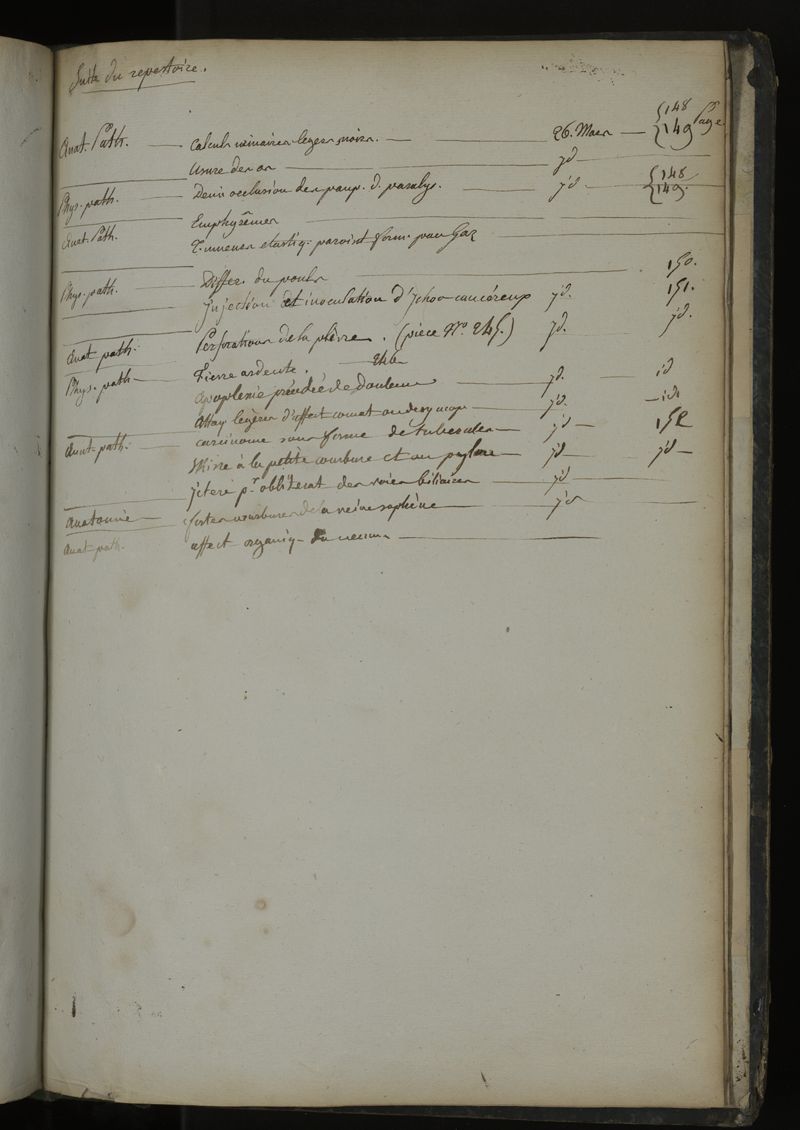 Suite du repertoire.
Page
Anat. Path. — Calculs urinaires legers noirs. — 26. Mars — {148 {149
Usure des os — jd —
Phys. path. — Demi occlusion des paup. d. paralys. — jd — {148 {149.
Anat. Path. Emphysêmes
Tumeurs elastiq. paroist form. par Gaz
Phys. path. — Differ. du pouls — 150.
Injection et inoculation d'Ichor cancéreux jd. 151.
Anat path. Perforations de la plèvre. (piece No. 245.) jd. jd.
246
Phys. path — Fievre ardente.
apoplexie précédée de douleurs — jd. — id
legères d'affect comat ou de syncop — jd. — id.
Anat. path. — carcinome sous forme de tubercules — jd — 152
à la petite courbure et au pylore — jd — jd —
jctere pr. obliterat des voies biliaires — jd —
Anatomie — fortes courbures de la veine saphène — jd —
Anat path. affect organiq. du —